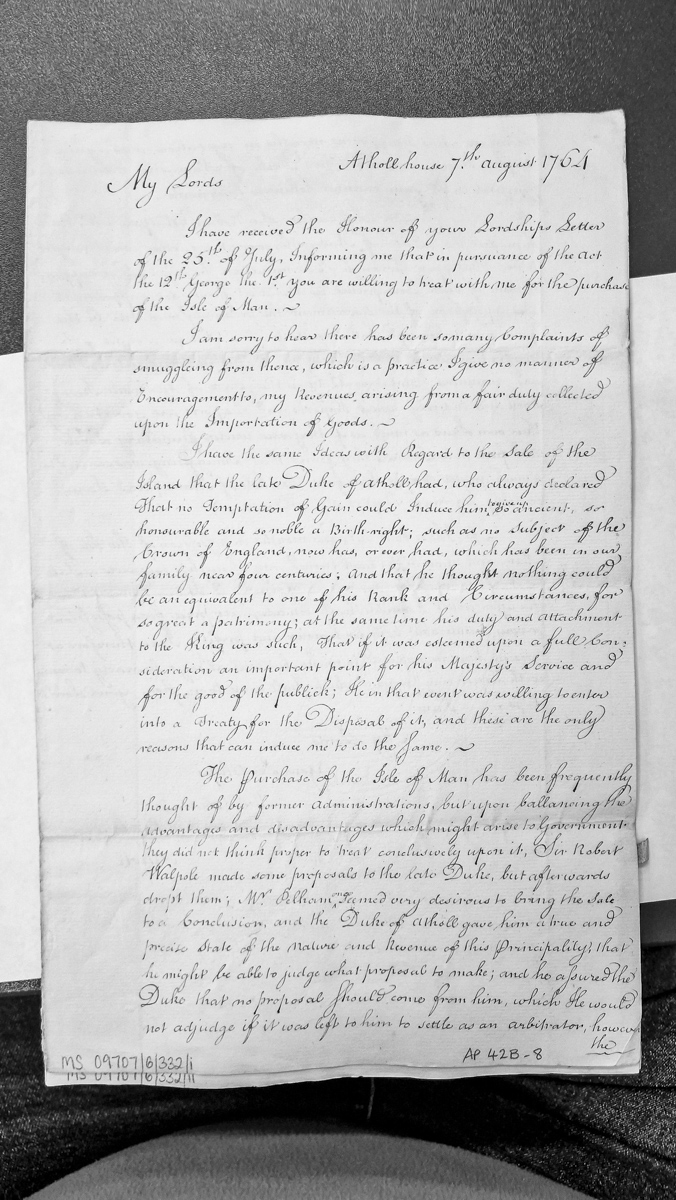 Atholl house 7.th August 1764
My Lords
I have received the Honour of your Lordships Letter
of the 25.th of July, Informing me that in pursuance of the Act
the 12th George the 1.st you are willing to treat with me for the purchase
of the Isle of Man. ~
I am sorry to hear there has been so many Complaints of
smuggleing from thence, which is a practice I give no manner of
Encouragement to, my Revenues arising from a fair duty collected
upon the Importation of Goods. ~
I have the same Ideas with Regard to the Sale of the
Island that the late Duke of Atholl had, who always declared
That no Temptation of Gain could Induce him, to give up so ancient, so
honourable and so noble a Birth-right; such as no Subject of the
Crown of England, now has, or ever had, which has been in our
family near four centuries; And that he thought nothing could
be an equivalent to one of his Rank and Circumstances, for
so great a patrimony; at the same time his duty and Attachment
to the King was such, That if it was esteemed upon a full Con-
sideration an important point for his Majesty's Service and
for the good of the publick; He in that event was willing to enter
into a Treaty for the Disposal of it, and these are the only
reasons that can induce me to do the same. ~
The Purchase of the Isle of Man has been frequently
thought of by former Administrations, but upon ballancing the
advantages and disadvantages which might arise to Government
they did not think proper to treat conclusively upon it, Sir Robert
Walpole made some proposals to the late Duke, but afterwards
dropt them; Mr Pelham seemed very desirous to bring the Sale
to a Conclusion, and the Duke of Atholl gave him a true and
precise State of the Nature and Revenue of this Principality, that
he might be able to judge what proposal to make; and he assured the
Duke that no proposal should come from him, which He would
not adjudge if it was left to him to settle as an arbitrator, however
the
MS 09707/6/332/i
MS 09707/6/332/ii
AP 42B-8